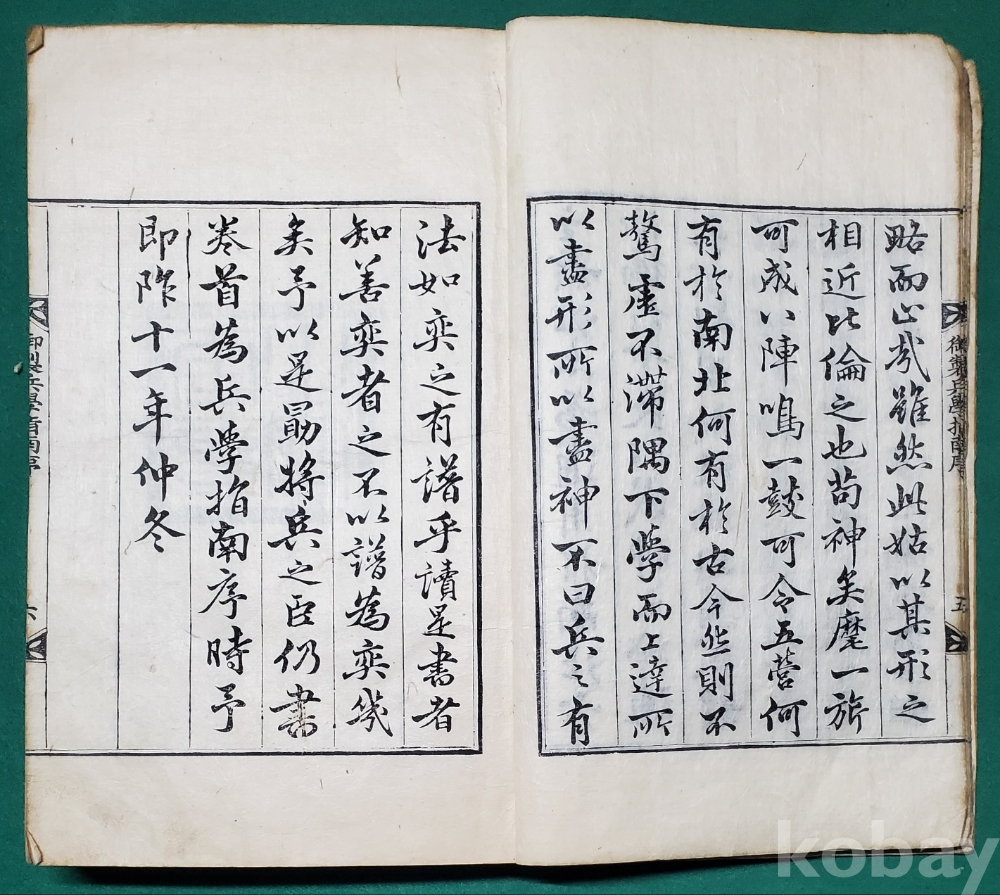 略而止哉雖然此姑以其形之
相近比倫之也苟神矣麾一旅
可成八陣鳴一鼓可令五營何
有於南北何有於古今然則不
騖虛不滯隅下學而上達所
以盡形所以盡神不曰兵之有
御製兵學指南序
五
法如奕之有譜乎讀是書者
知善奕者之不以譜為奕幾
矣予以是勗將兵之臣仍書
卷首為兵學指南序時予
即阼十一年仲冬
御製兵學指南序
六
kobay